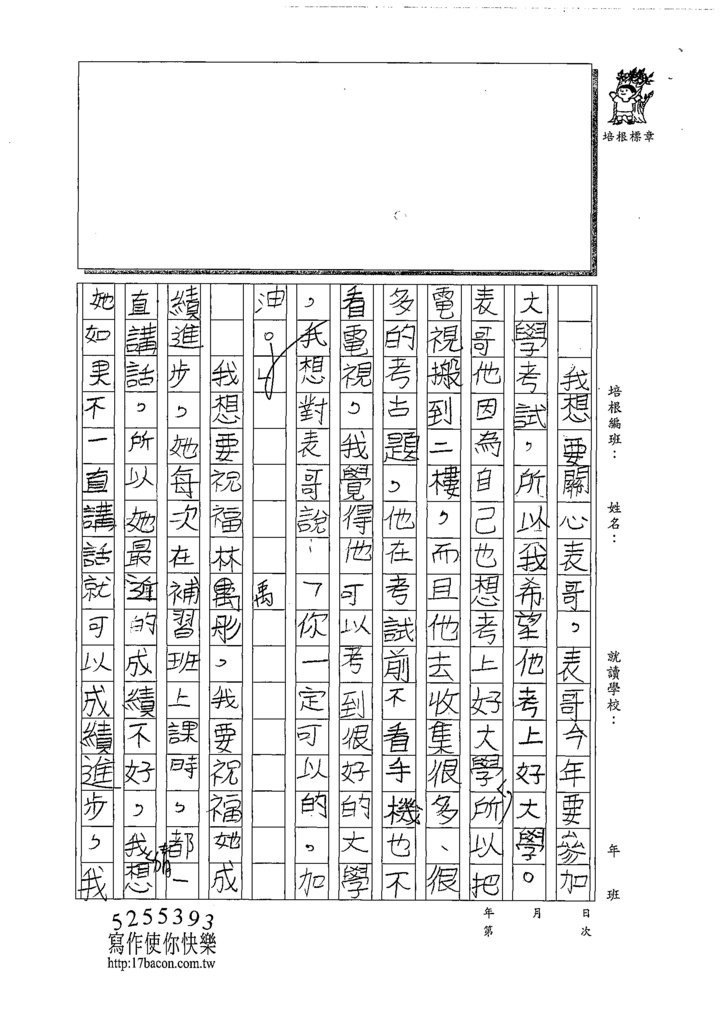 培根標章
培根編班：
姓名：
就讀學校：
年 班
年 月 日
第 次
我想要關心表哥。表哥今年要參加
大學考試，所以我希望他考上好大學。
表哥他因為自己也想考上好大學，所以把
電視搬到二樓，而且他去收集很多、很
多的考古題，他在考試前不看手機也不
看電視。我覺得他可以考到很好的大學
，我想對表哥說：「你一定可以的，加
油。」
我想要祝福林禹彤。我要祝福她成
禹
績進步，她每次在補習班上課時，都一
直講話，所以她最近的成績不好，我想
請
她如果不一直講話就可以成績進步，我
5255393
寫作使你快樂
http:17bacon.com.tw